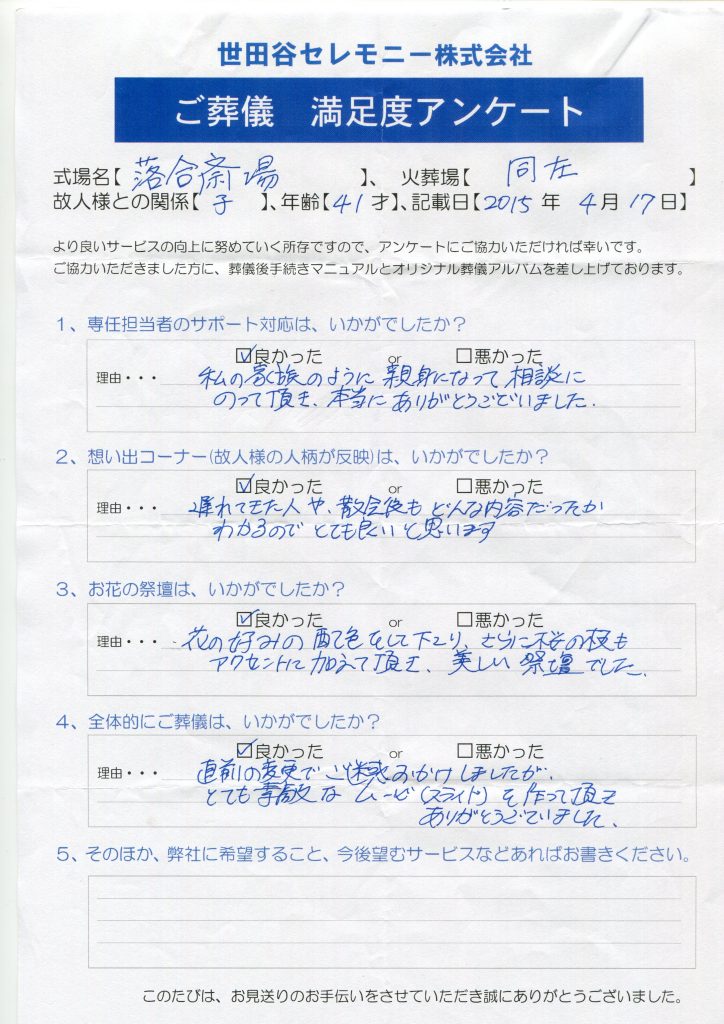 世田谷セレモニー株式会社
ご葬儀　満足度アンケート
式場名【 落合斎場 】、火葬場【 同左 】
故人様との関係【 子 】、年齢【 41 才】、記載日【 2015 年 4 月 17 日】
より良いサービスの向上に努めていく所存ですので、アンケートにご協力いただければ幸いです。
ご協力いただきました方に、葬儀後手続きマニュアルとオリジナル葬儀アルバムを差し上げております。
1、専任担当者のサポート対応は、いかがでしたか？
☑良かった or □悪かった
理由・・・ 私の家族のように親身になって相談に
のって頂き、本当にありがとうございました.
2、想い出コーナー(故人様の人柄が反映)は、いかがでしたか？
☑良かった or □悪かった
理由・・・ 遅れてきた人や、散会後もどんな内容だったか
わかるのでとても良いと思います
3、お花の祭壇は、いかがでしたか？
☑良かった or □悪かった
理由・・・ 花の好みの配色をして下さり、さらに桜の枝も
アクセントに加えて頂き、美しい祭壇でした.
4、全体的にご葬儀は、いかがでしたか？
☑良かった or □悪かった
理由・・・ 直前の変更でご迷惑おかけしましたが、
とても素敵なムービー(スライド)を作って頂き
ありがとうございました.
5、そのほか、弊社に希望すること、今後望むサービスなどあればお書きください。
このたびは、お見送りのお手伝いをさせていただき誠にありがとうございました。